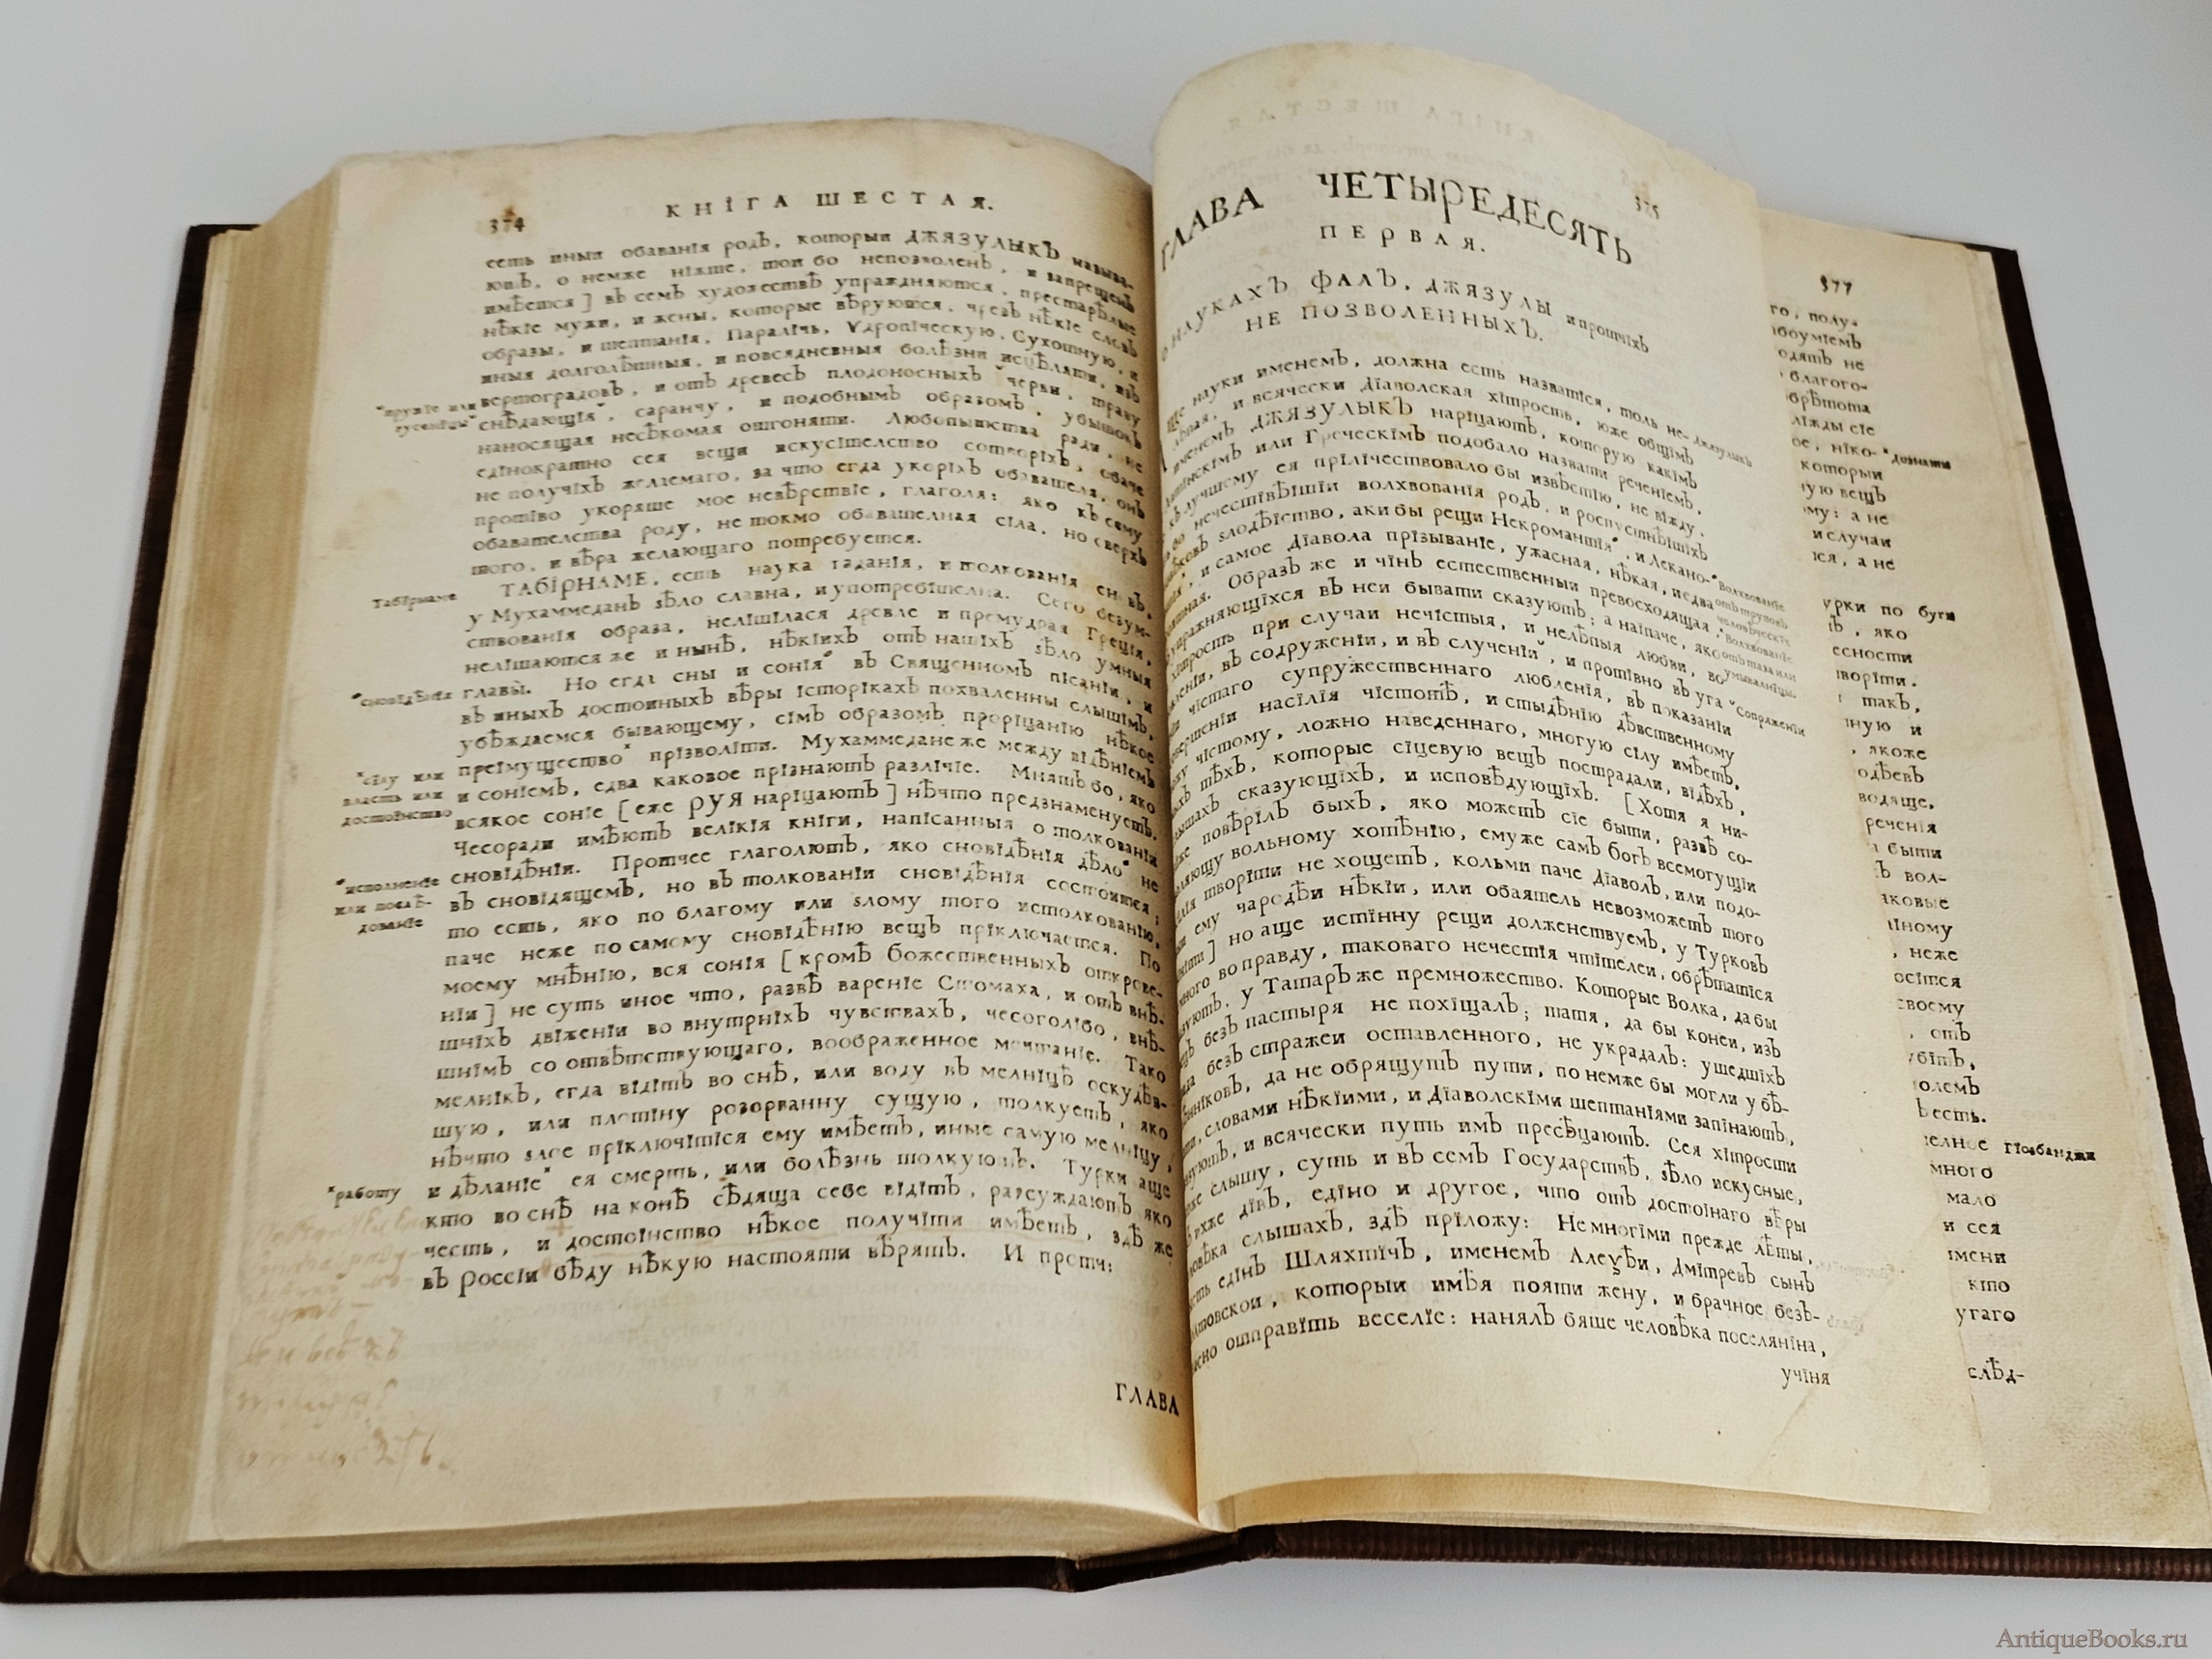 374
КНІГА ШЕСТАЯ.
сеть иныи обаванія родЪ, которыи ДЖЯЗУЛЫКЪ называ-
ютЪ, о немже ніжте, тои бо непозволенЪ, и запрещемЪ
имѢется] вЪ семЪ художествѢ упраждняются, престарѢлые
нѢкіе мужи, и жены, которые вѢруются, чрезЪ нѢкіе словЪ
образы, и шептанія, Паралічь, Удропіческую, Сухотную, и
иныя долголѢтныя, и повсядневныя болѢзни исцѢляти, изЪ
"пружіе или вертоградовЪ, и отЪ древесЪ плодоносныхЪ "черви, траву
гусеницы" снѢдающія", саранчу, и подобнымЪ образомЪ, убытокЪ
наносящая несѢкомая отгоняти. Любопытства ради, не
едінократно сея вещи искусітелство сотворіхЪ, обаче
не получіхЪ желаемаго, за что егда укоріхЪ обавателя, онЪ
протіво укоряше мое невѢрствіе, глаголя: яко кЪ сему
обавателства роду, не токмо обавателная сіла, но сверхЪ
того, и вѢра желающаго потребуется.
Табірнаме ТАБІРНАМЕ, есть наука гаданія, и толкованія сновЪ,
у МухаммеданЪ зѢло славна, и употребітелна. Сего безум-
ствования образа, нелішілася древле и премудрая Греція,
нелішаются же и нынѢ, нѢкіихЪ отЪ нашіхЪ зѢло умныя
"сновідѢнія главы. Но егда сны и сонія" вЪ Священномъ пісаніи, и
вЪ иныхЪ достоиныхЪ вѢры історікахЪ похваленны слышімЪ,
убѢждаемся бывающему, сімЪ образомЪ проріцанію нѢкое
"сілу или преімущество" прізволіти. Мухаммедане же между відѢніемЪ
власть или и соніемЪ, едва каковое прізнаютЪ разлічіе. МнятЪ бо, яко
достоінство всякое соніе [еже РУЯ наріцаютЪ] нѢчто предзнаменуетЪ.
Чесоради имѢютЪ велікія кніги, напісанныя о толкованіи
"исполненіе сновідѢніи. Протчее глаголютЪ, яко сновідѢнія дѢло" не
или послѢ- вЪ сновідящемЪ, но вЪ толкованіи сновідѢнія состоится;
дованіе то есть, яко по благому или злому того истолкованію,
паче неже по самому сновідѢнію вещЪ пріключается. По
моему мнѢнію, вся сонія [кромѢ божественныхЪ открове-
ніи] не суть иное что, развѢ вареніе Стомаха, и отЪ внѢ-
шніхЪ двіженіи во внутрніхЪ чувствахЪ, чесоголібо, внѢ-
шнімЪ со отвѢтствующаго, воображенное мечтаніе. Тако
мелнікЪ, егда відітЪ во снѢ, или воду вЪ мелніцѢ оскудѢв-
шую, или плотіну розорванну сущую, толкуетЪ, яко
нѢчто злое пріключітіся ему имѢетЪ, иные самую мелніцу,
"работу и дѢланіе" ея смерть, или болѢзнь толкуютЪ. Турки аще
кто во снѢ на конѢ сѢдяща себе відітЪ, разсуждаютЪ яко
честь, и достоінство нѢкое получіти имѢетЪ, здѢ же
вЪ Россіи бѢду нѢкую настояти вѢрятЪ. И протч:
ГЛАВА
375
ГЛАВА ЧЕТЫРЕДЕСЯТЬ
ПЕРВАЯ.
О НАУКАХЪ ФАЛЪ, ДЖЯЗУЛЫ и протчіхЪ
НЕ ПОЗВОЛЕННЫХЪ.
науки именемЪ, должна есть назватіся, толь не-
и всячески Діаволская хітрость, юже общімЪ
именемЪ ДЖЯЗУЛЫКЪ наріцаютЪ, которую какімЪ джязулыкЪ
или ГреческімЪ подобало назвати реченіемЪ,
лучшему ея прілічествовало бы извѢстію, не віжду.
бо нечестівѢишіи волхвованія родЪ, и роспустнѢишіхЪ
злодѢіство, аки бы рещи Некромантія", и Лекано-
и самое Діавола прізываніе, ужасная, нѢкая, и едва "Волхвованіе
ОбразЪ же и чінЪ естественныи превосходящая отЪ труповЪ
упражняющіхся вЪ неи бывати сказуютЪ; а наіпаче, яко человѢческіхЪ
хітрость при случаи нечістыя, и нелѢпыя любви, во "Волхвованіе
вЪ содруженіи, и вЪ слученій", и протівно вЪ уга отЪ таза или
чістаго супружественнаго любленія, вЪ показаніи умывалніцы.
насілія чістотѢ, и стыдѢнію дѢвственному "Сопряженіи
чістому, ложно наведеннаго, многую сілу имѢетЪ.
тѢхЪ, которые сіцевую вещЪ пострадали, відѢхЪ,
сказующіхЪ, и исповѢдующіхЪ. [Хотя я ни-
повѢрілЪ быхЪ, яко можетЪ сіе быти, развѢ со-
вольному хотѢнію, емуже самЪ богЪ всемогущіи
творіти не хощетЪ, кольми паче ДіаволЪ, или подо-
ему чародѢи нѢкіи, или обаятель невозможетЪ того
но аще истінну рещи долженствуемЪ, у ТурковЪ
во правду, таковаго нечестія чтітелеи, обрѢтатіся
у ТатарЪ же премножество. Которые Волка, да бы
безЪ пастыря не похіщалЪ; татя, да бы конеи, изЪ
безЪ стражеи оставленного, не украдалЪ: ушедшіхЪ
да не обрящутЪ пути, по немже бы могли убѢ-
словами нѢкіими, и Діаволскіми шептаніями запінаютЪ,
и всячески путь имЪ пресѢцаютЪ. Сея хітрости
слышу, суть и вЪ семЪ ГосударствѢ, зѢло искусные,
дівЪ, едіно и другое, что отЪ достоінаго вѢры
слышахЪ, здѢ пріложу: Немногіми прежде лѢты,
едінЪ ШляхтічЪ, именемЪ АлеѯѢи, ДмітревЪ сынЪ
которыи имѢя пояти жену, и брачное безЪ-
отправіть веселіе: нанялЪ бяше человѢка поселяніна,
учіня
377
го, полу-
боумiемЪ
одятЪ не
благого-
брѢтота
ліжды сіе
ое, ніко- "дознати
которыи
ую вещЪ
му: а не
и случаи
ся, а не
урки по буги
яко
есности
воріти.
такЪ,
ную и
якоже
одѢевЪ
водяще,
реченія
быти
вол-
аковые
іному
неже
осітся
своему
отЪ
убітЪ,
олемЪ
есть.
елное гіозбанджи
много
мало
и сея
імени
кто
угаго
слѢд-
AntiqueBooks.ru